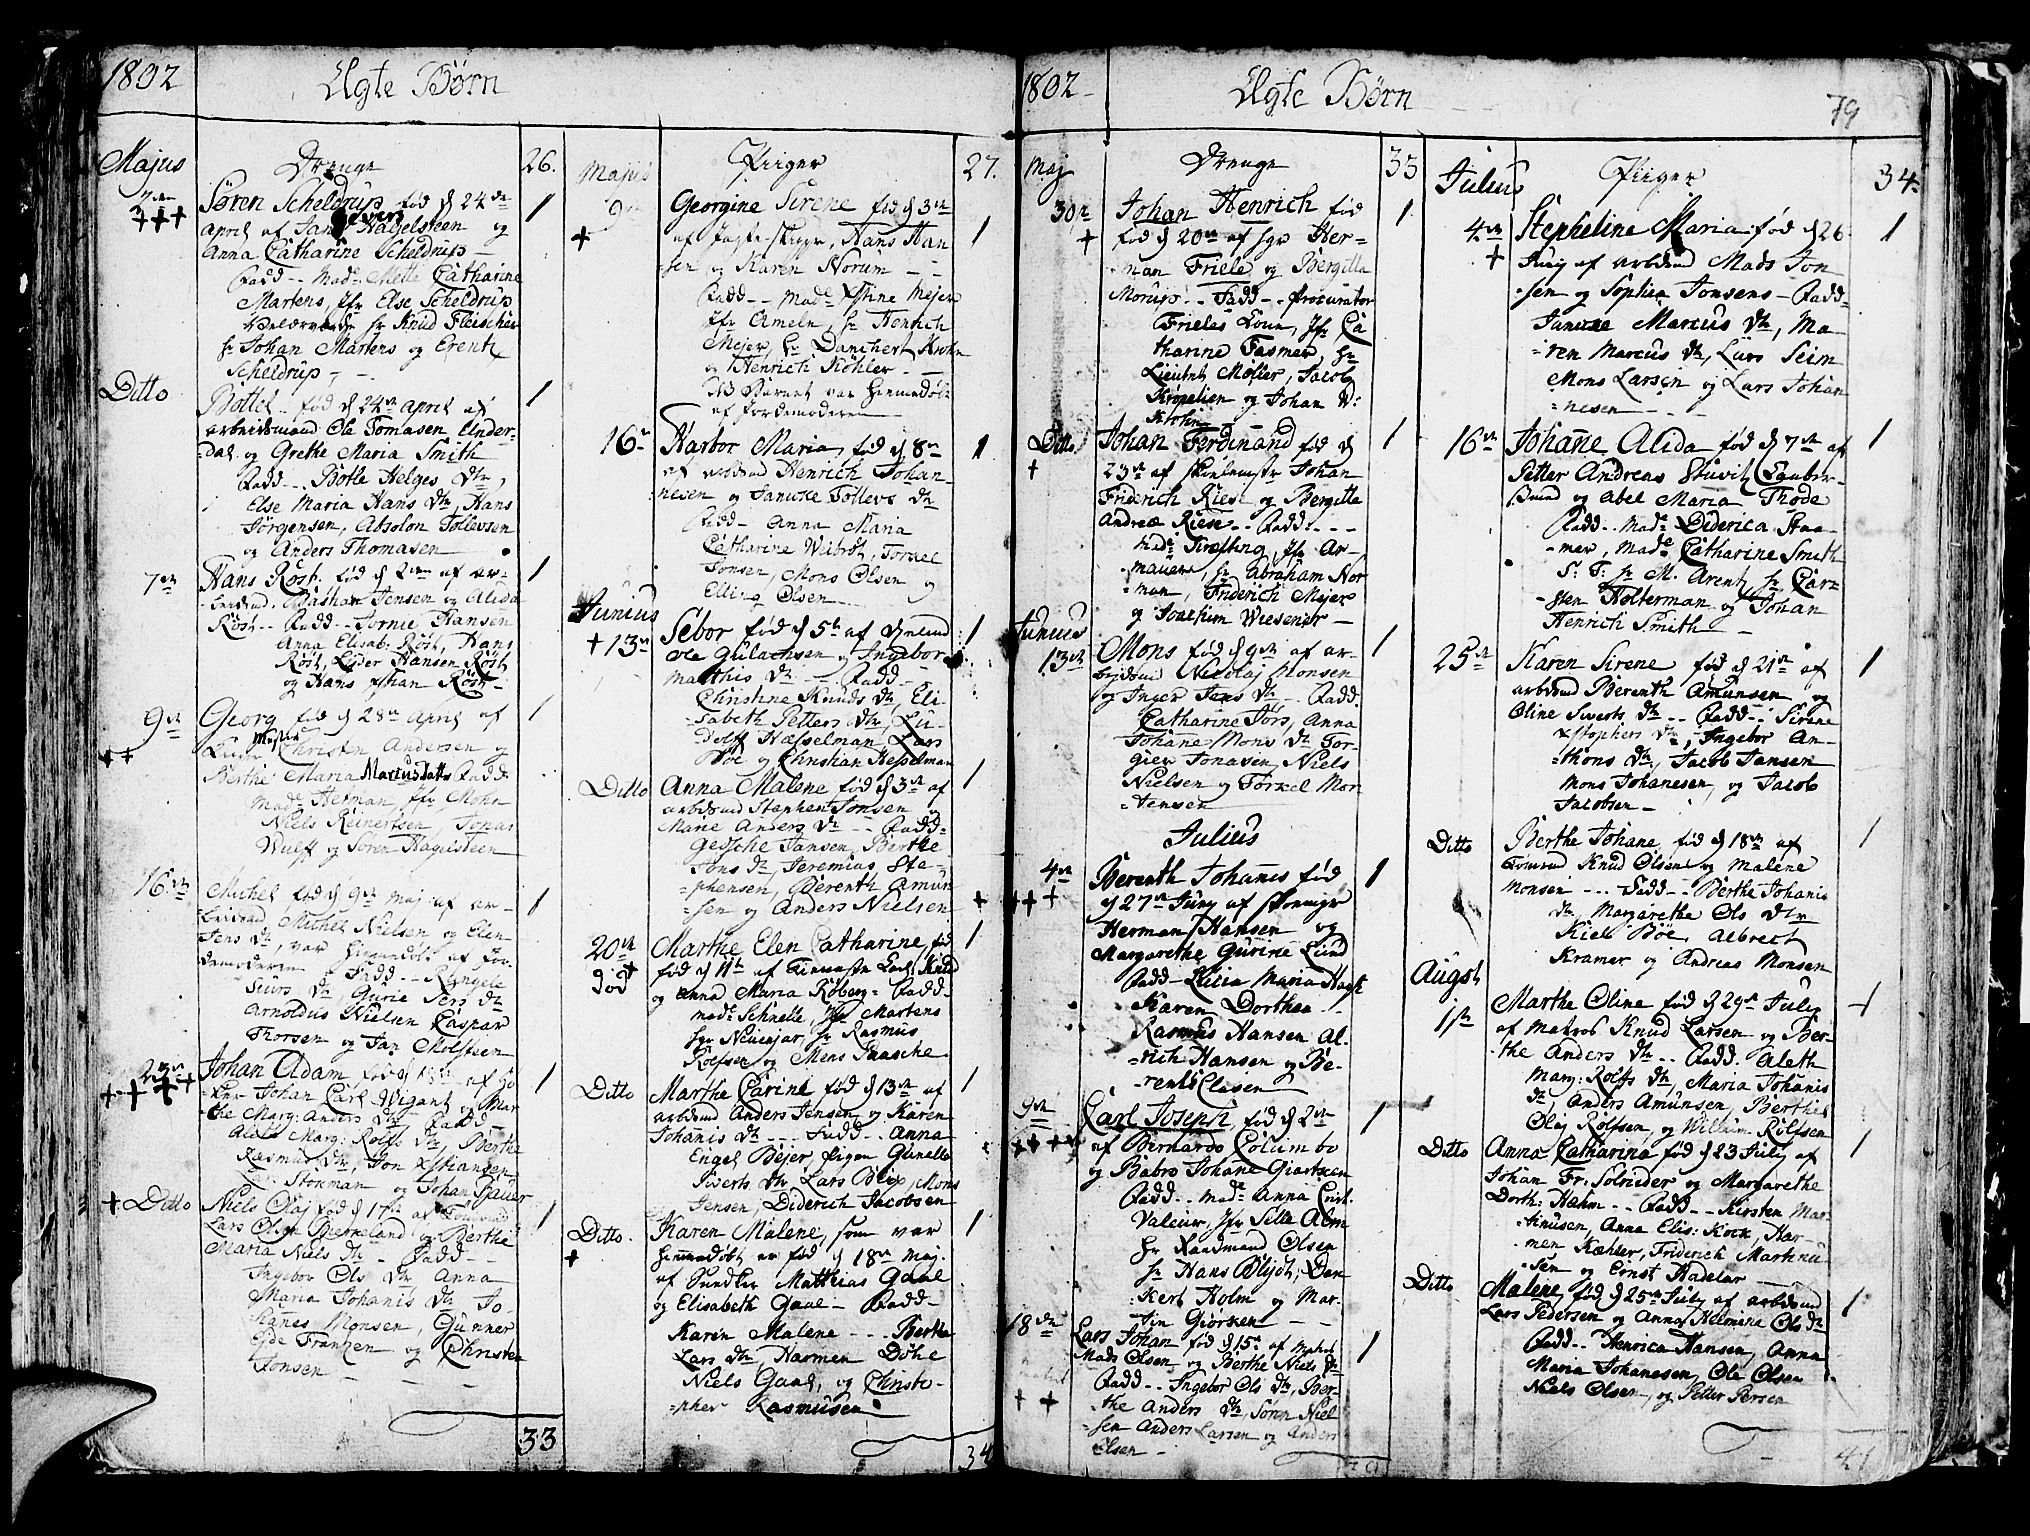 1802 Ægte Børn
Majus Drenge 26.
7de Søren Scheldrup fød d 24de 1
+++ april af Jans Hagelsteen og
Anna Catharine Scheldrup -
Fadd - Made Mette Catharine
Martens, Jfr Else Scheldrup
hr Knud Fleischer
hr Johan Martens og Erentz
Scheldrup - -
Ditto Bottel fød d 24de april af 1
arbeidsmand Ole Tomasen Under-
dal og Grethe Maria Smith
Fadd .. Botle Helges dtr,
Else Maria Hans dtr, Hans
Jørgensen, Absolon Tollevsen
og Anders Thomasen
7de Hans Rost. fød d 2den af ar- 1
Bastian Jensen og Alida
Rost .. Fadd .. Tornie Hansen
Anna Elisab: Rost, Hans
Rost, Lyder Hansen Rost
og Hans Rost -
9de Georg fød d 28de April af 1
Christen Andersen og
++ Berthe Maria Marcusdatter Fadd
Made Herman Jfr Mohn
Niels Reinertsen, Jonas
Wulff og Søren Hagelsteen
16de Michel fød d 9de maj af ar- 1
Michel Nielsen og Elen
Jens dtr, var hiemmedøbt af Jor-
demoderen Fadd .. Rangele
Siurs dtr, Gurie Pers dtr
Arnoldus Nielsen Caspar
Thorsen og Jan Molssen
23de Johan Adam, fød d 18de af 1
++++ Johan Carl Wigant og Mar-
the Marg: Anders dtr Fadd -
Aleth Marg: Rolfs dtr, Berthe
Rasmus dtr, Jon Xstiansen
Storman og Johan Bauer
+ Ditto Niels Olaj fød d 17de af 1
Lars Olsen Berkeland og Berthe
Maria Niels dtr - Fadd - -
Ingebor Ols dtr Anna
Maria Johanis dtr Jo-
hanes Monsen, Gunner
Gde Franzen og Christen
Jonsen - - -
33
Majus Piiger 27.
9de Georgine Sirene fød d 3de 1
+ af Hans Han
sen og Karen Norum - -
Fadd .. Made Xstine Mejer
Jfr Ameln, hr Henrich
Mejer, hr Danchert Krohn
og Henrich Køhler - -
NB Barnet var hiemmedøbt
af Jordemoderen
16de Harbor Maria, fød d 8de 1
af arbdmd Henrich Johan
nesen og Janicke Tollevs dtr
Fadd - Anna Maria
Catharine Weibrot, Torkel
Jonsen, Mons Olsen og
Elling Olsen
Junius
+ 13de Sebor fød d 5te af 1
Ole Gulachsen og Ingebor
Matthis dtr - Fadd -
Christine Knuds dtr, Eli-
sabeth Petters dtr, Lu-
dolff Hesselman, Lars
Bøe og Christian Hesselman
Ditto Anna Malene fød d 3de af 1
arbdmd Stephen Jonsen
Marie Anders dtr - Fadd -
Gedsche Jansen, Berthe
Jons dtr, Jeremias Ste-
phensen, Berenth Amun
sen og Anders Nielsen
20de Marthe Elen Catharine, fød 1
død fød d 11te af Carl Knud
og Anna Maria Roberg - Fadd -
Made Schnelle, Jfr Martens
Sgr hr Rasmus
Rolfsen og Mens Paasche
Ditto Marthe Carine fød d 13de af 1
arbdmd Anders Jensen og Karen
Johanis dtr - - - Fadd .. Anna
Engel Bejer, Pigen Gunelle
Siverts dtr Lars Blix, Mons
Jensen, Diderich Jacobsen
Ditto. Karen Malene, som var 1
+ hiemmedøbt er fød d 18de Maj
af Matthias Gaae
og Elisabeth Gaae - Fadd -
Karen Malene - - - Berthe
Lars dtr, Harmen Döhe
Niels Gaae, og Christo-
pher Rasmusen
34
1802 Ægte Børn 79
Maj Drenge 33
30te Johan Henrich fød 1
+ fød d 20de af Sgr Her-
man Friele og Bergitta
Morup .. Fadd .. Procurator
Frieles Kone, Jfr Ca
tharine Fasmer, hr
Lieutnt Möller, Jacob
Kropelien og Johan W:
Krohn
Ditto Johan Ferdinand fød d 1
+ 23de af Johan
Friderich Riese og Bergitte
Andreæ Riese .. Fadd .. -
Made Jfr Ar-
mauer, hr Abraham Nor
man, Friderich Mejer
og Joachim Wiesener -
Junius
13de Mons fød d 9de af ar- 1
Nicolaj Monsen
og Inger Jens dtr - Fadd
Catharine Jørs, Anna
Johane Mons dtr Tor-
gier Jonasen, Niels
Nielsen og Torkel Mor-
tensen
Julius
4de Berenth Johannes fød 1
+++ d 27de Juny af
Herman Hansen og
Margarethe Gurine Lund
Fadd - Maria
Karen Dorthea -
Rasmus Hansen Al-
rich Hansen og Be-
rent Clasen
9de Carl Joseph, fød d 2de 1
++++ af Bernardo Columbo
og Babro Johane Giertsen
Fadd .. Made Anna Crist.
Valeur, Jfr Sille Alm
hr Raadmand Olsen
hr Hans Blydt, Dan
kert Holm og Mar-
tin Giörsen - -
18de Lars Johan fød d 15de af 1
Mads Olsen, og Berthe Niels dtr
Fadd .. Ingebor Ols dtr, Ber-
++ the Anders dtr, Søren Niel
sen Anders Larsen og Anders
Olsen -
Julius Piiger 34.
4de Stepheline Maria fød d 26 1
+ Juny af arbdmd Mads Jon
sen og Sophia Jonsens - Fadd -
Janicke Marcus dtr, Ma
ren Marcus dtr, Lars Seim
Mons Larsen og Lars Johan
nesen - - -
16de Johanne Alida fød d 7de af 1
Petter Andreas Stuvitz
og Abel Maria Thode
Fadd .. Made Diderica
Made Catharine Smith
S: T: hr M. Arentz, hr Car-
sten Holterman og Johan
Henrich Smith -
25de Karen Sirene fød d 21de af 1
arbdmd Berenth Amunsen og
Oline Siverts dtr .. Fadd .. Sirene
Xstophers dtr, Ingebor An-
thons dtr, Jacob Jansen
Mons Johanesen, og Jacob
Jacobsen -
Ditto Berthe Johane, fød d 18de af 1
Knud Olsen og Malene
Monsen - - - Fadd .. Berthe Johanis
dtr Margarethe Ols dtr
Kiel Bøe, Albrect
Kramer og Andreas Monsen
Augst
1ste Marthe Oline fød d 29de July 1
af Matros Knud Larsen og Ber-
the Anders dtr .. Fadd. Aleth
Marg: Rolfs dtr, Maria Johanis
dtr Anders Amunsen, Berthel
Olaj Rolfsen, og William Rolfsen
Ditto Anna Catharina fød d 23 July af 1
Johan Fr: Solrieder og Margarethe
Dorth: Halm .. Fadd .. Kirsten Mar-
tinusen, Anna Elis: Kock, Har-
men Kæhler, Friderich Martinu-
sen og Ernst Hadeler
Ditto Malene, fød d 25de July af arbdmd 1
Lars Pedersen og Anna Helmine Ols dtr
Fadd .. Henrica Hansen, Anna
Maria Johanesen, Ole Olsen
Niels Olsen, og Petter Persen
41